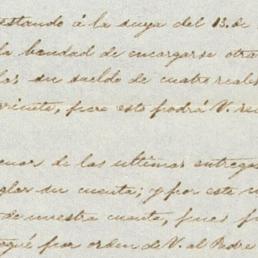 estando á la suya del 13. de
la bondad de encargarse otra
las su sueldo de cuatro reales
vicente, pues esto podrá V. re
enar de las ultimas entregas
glar su cuenta; y por este
de nuestra cuenta, pues
qué por orden de V. al Padre